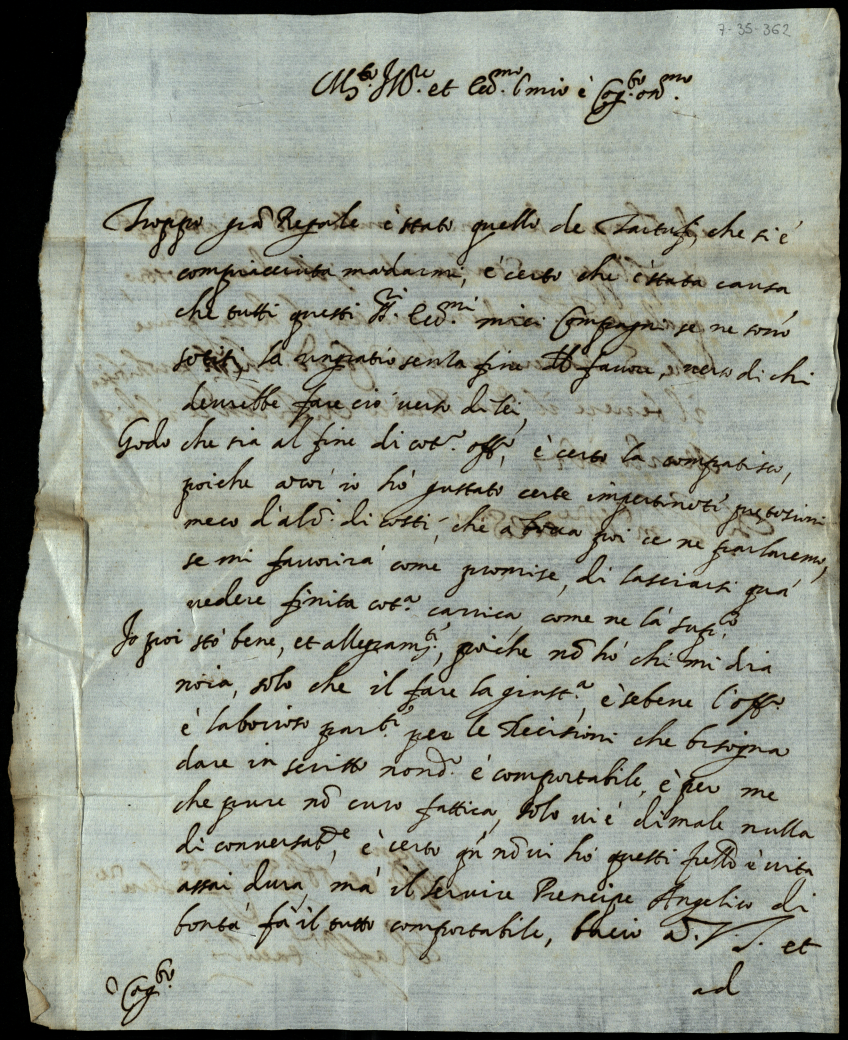 7-35-362
M.to Ill.re et Ecc.mo S mio è Cog.to on.mo
Troppo grã Regale è stato quello de Tartufi, che si è
compiacciuta mãdarmi, è certo che è stata causa
che tutti questi SS.ri Ecc.mi miei Compagni se ne sono
, la ringratio senza fine del favore, di chi
deurebbe fare ciò verso di lei,
Godo che sia al fine di cot.o off.o, è certo la compatisco,
poiche ancor io hò gustato certe impertinẽti pretensioni
meco d'alc.i di costi che a bocca poi ce ne parlaremo,
se mi favorirà come promise, di lasciarsi quà
vedere finita cot.a carrica, come ne la sup.co
Io poi stò bene, et allegram.te, poiche nõ hò chi mi dia
noia, solo che il fare la giust.a, è sebene l'off.o
è laborioso part.e per le Decisioni che bisogna
dare in scritto nond.o è comportabile, è per me
che pure nõ curo fattica, solo vi è di male nulla
di conversat.ne, è certo nõ vi hò questi è vita
assai dura, mà il servire Prencipe Angelico di
bontà fà il tutto comportabile, bacio a V.S. et
è Cog.to
ad